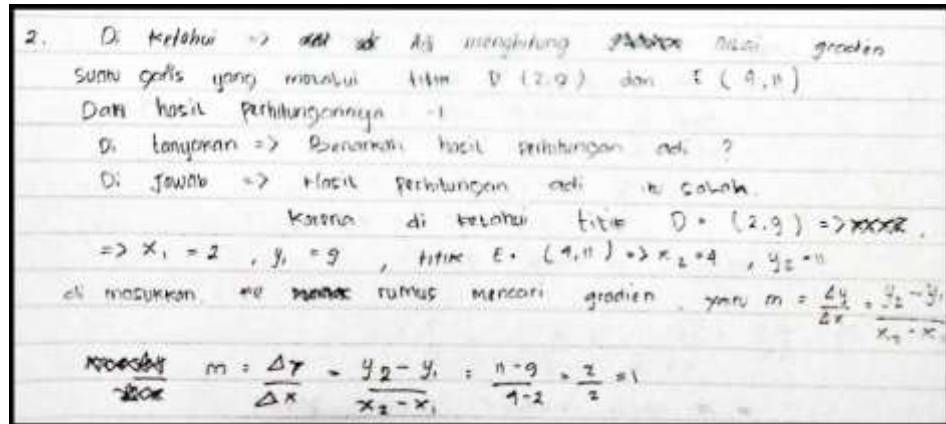 2. Di Ketahui => Adi menghitung nilai gradien
suatu garis yang melalui titik D (2,9) dan E (4,11)
Dan hasil perhitungannya -1
Di tanyakan => Benarkah hasil perhitungan adi ?
Di Jawab => Hasil perhitungan adi salah.
Karena di ketahui titik D = (2,9) =>
=> x₁ = 2 , y₁ = 9 , titik E = (4,11) => x₂ = 4 , y₂ = 11
di masukkan ke rumus mencari gradien yaitu m = Δy/Δx = y₂ - y₁/x₂ - x₁
m = Δy/Δx = y₂ - y₁/x₂ - x₁ = 11-9/4-2 = 2/2 = 1